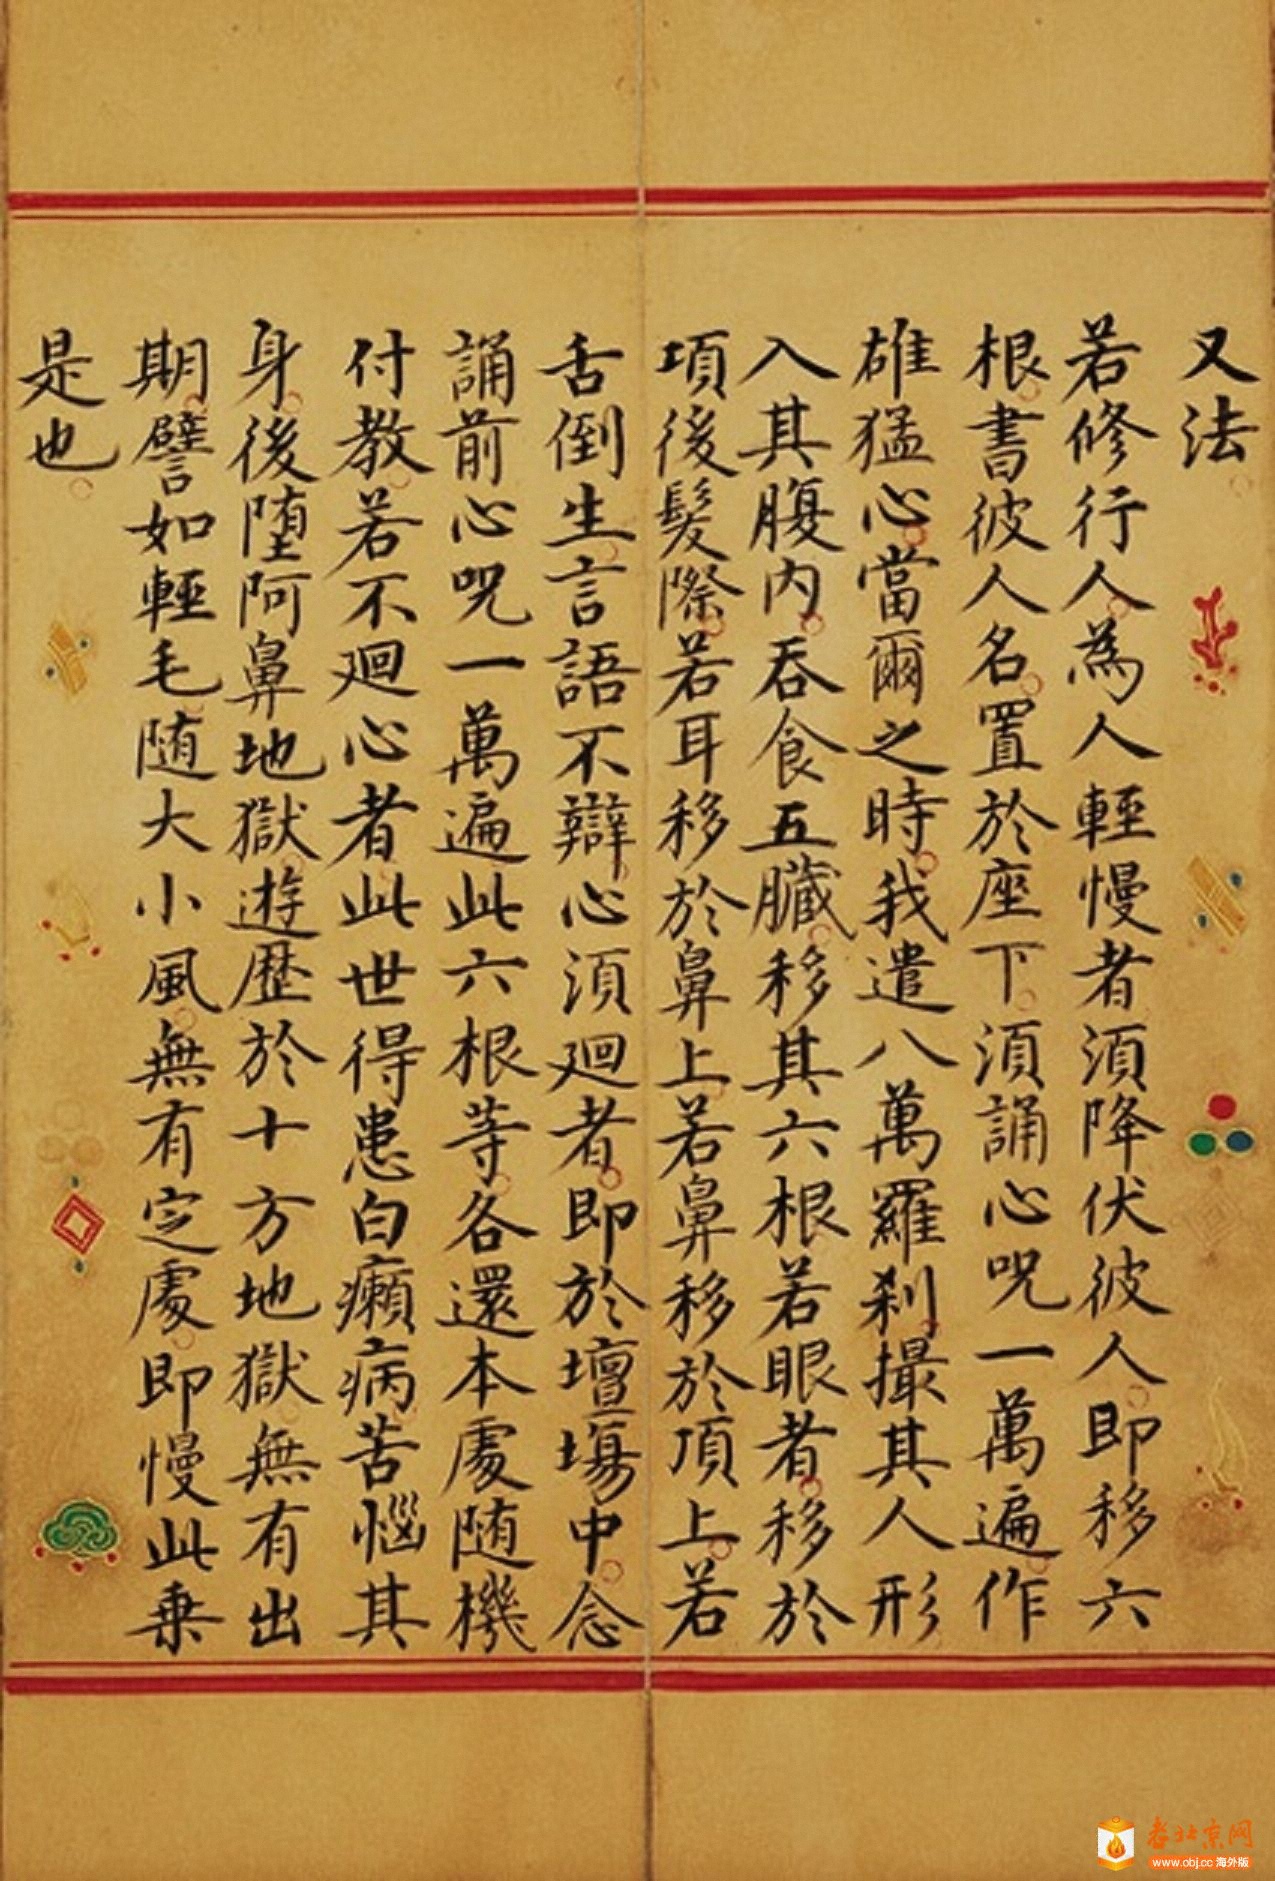 又法
若修行人為人輕慢者須降伏彼人即移六
根書彼人名置於座下須誦心呪一萬遍作
雄猛心當爾之時我遣八萬羅剎撮其人形
入其腹內吞食五臟移其六根若眼者移於
項後髮際若耳移於鼻上若鼻移於頂上若
舌倒生言語不辯心須迴者即於壇場中念
誦前心呪一萬遍此六根等各還本處随機
付教若不迴心者此世得患白癩病苦惱其
身後堕阿鼻地獄遊歷於十方地獄無有出
期譬如輕毛随大小風無有定處即慢此乗
是也
老北京网
www.obj.cc 海外版